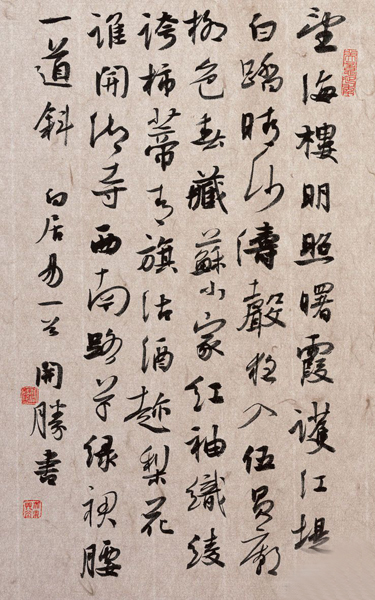 望海樓明照曙霞護江堤
白踏晴沙濤聲夜入伍員廟
柳色春藏蘇小家紅袖織綾
誇柿蒂青旗沽酒趁梨花
誰開湖寺西南路草綠裙腰
一道斜 白居易一首 開勝書